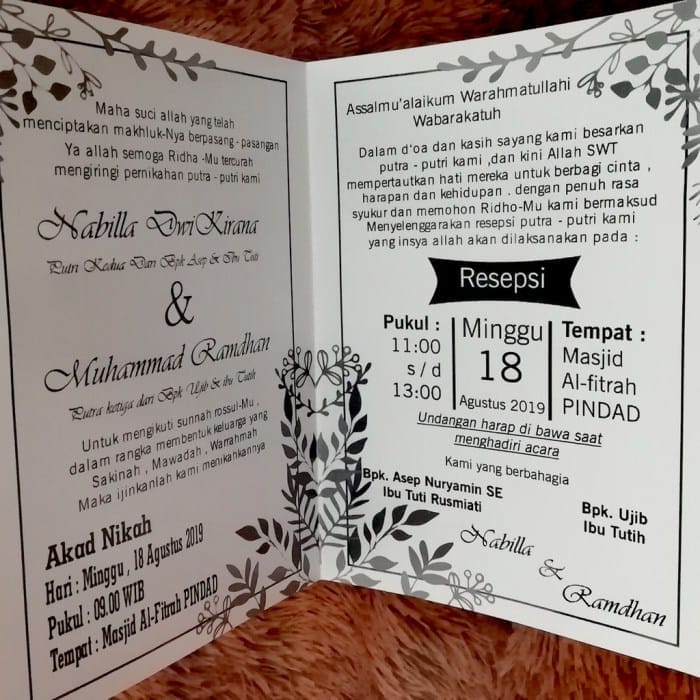 Maha suci allah yang telah
menciptakan makhluk-Nya berpasang - pasangan
Ya allah semoga Ridha -Mu tercurah
mengiringi pernikahan putra - putri kami
Nabilla Dwi Kirana
Putri Kedua Dari Bpk Asep & Ibu Tuti
&
Muhammad Ramdhan
Putra ketiga dari Bpk Ujib & ibu Tutih
Untuk mengikuti sunnah rossul-Mu ,
dalam rangka membentuk keluarga yang
Sakinah , Mawadah , Warrahmah
Maka ijinkanlah kami menikahkannya
Akad Nikah
Hari : Minggu , 18 Agustus 2019
Pukul : 09.00 WIB
Tempat : Masjid Al-Fitrah PINDAD
Assalmu'alaikum Warahmatullahi
Wabarakatuh
Dalam d'oa dan kasih sayang kami besarkan
putra - putri kami ,dan kini Allah SWT
mempertautkan hati mereka untuk berbagi cinta ,
harapan dan kehidupan . dengan penuh rasa
syukur dan memohon Ridho-Mu kami bermaksud
Menyelenggarakan resepsi putra - putri kami
yang insya allah akan dilaksanakan pada :
Resepsi
Pukul :
11:00
s / d
13:00
Minggu
18
Agustus 2019
Tempat :
Masjid
Al-fitrah
PINDAD
Undangan harap di bawa saat
menghadiri acara
Kami yang berbahagia
Bpk. Asep Nuryamin SE
Ibu Tuti Rusmiati
Bpk. Ujib
Ibu Tutih
Nabilla
&
Ramdhan